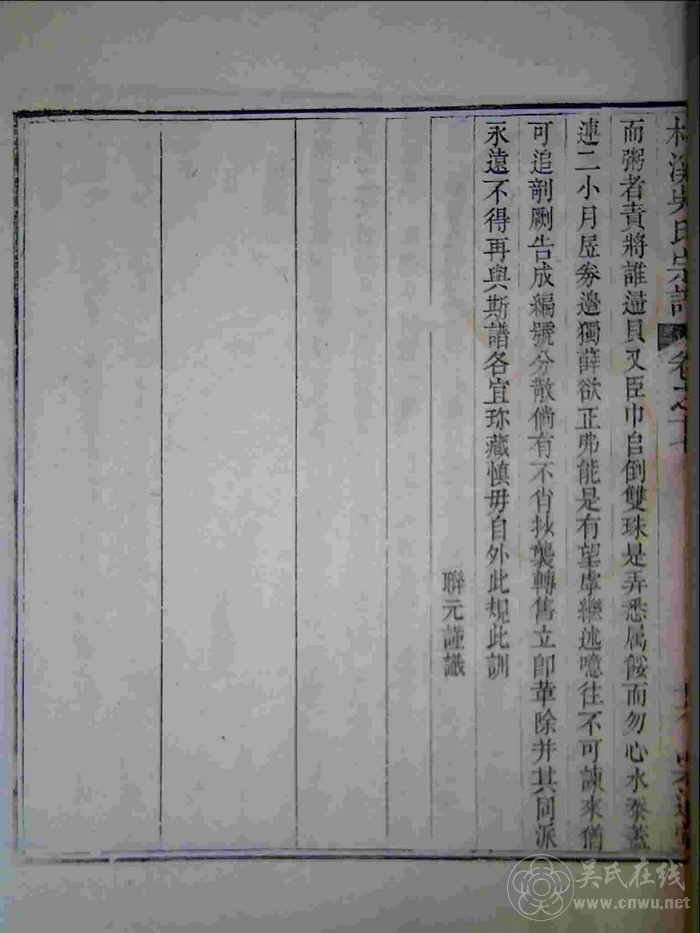 溪吳氏宗譜 卷之
而粥者責將誰逭貝又臣巾自倒雙珠是弄悉属餒而勿心水桼蓋
連二小月昱劵邊獨薛欲正弗能是有望虖繼述噫往不可諫來猶
可追剞劂告成編號分散倘有不肖抄襲轉售立卽革除并其同派
永遠不得再與斯譜各宜珎藏慎毋自外此規此訓
聯元謹識
吴氏在线
www.cnwu.net